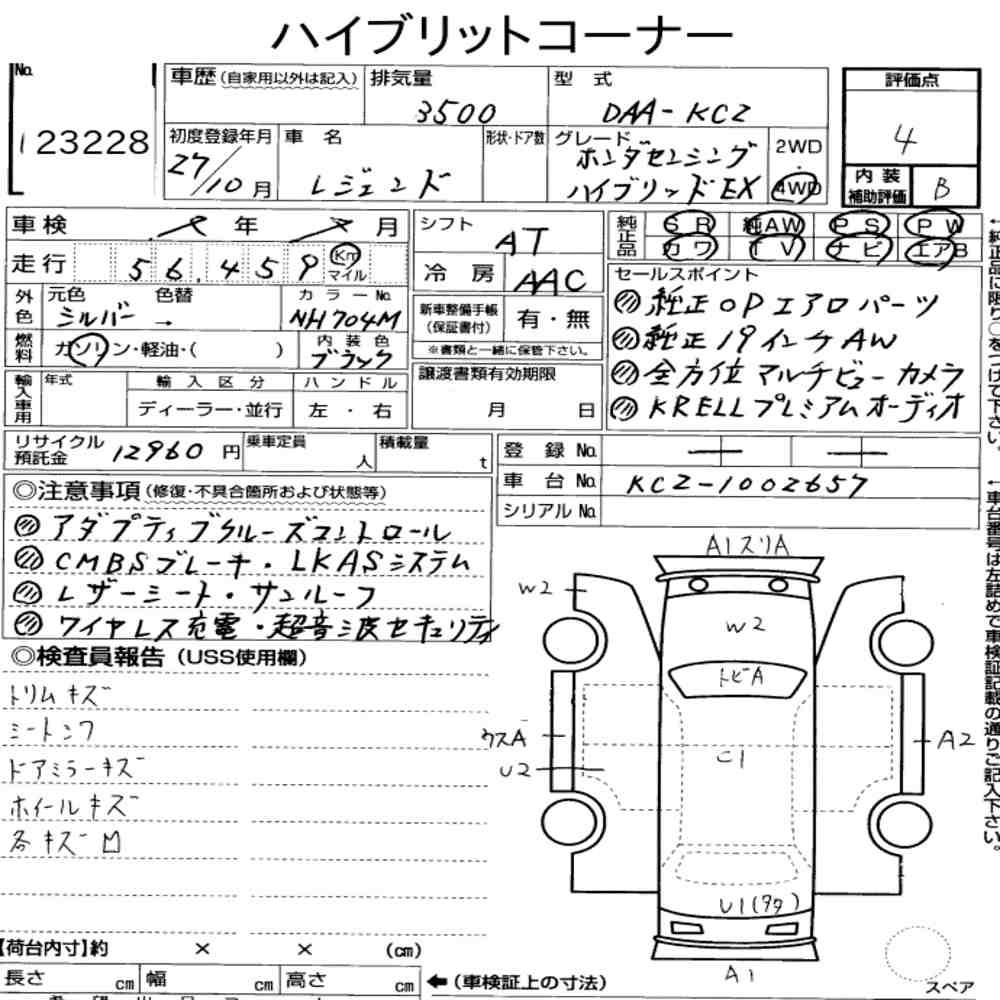 ハイブリットコーナー
No.
123228
車歴(自家用以外は記入)
排気量
3500
型 式
DAA-KC2
評価点
4
初度登録年月
27/10月
車 名
レジェンド
形状・ドア数
グレード
ホンダセンシング
ハイブリッドEX
2WD
4WD
内装
補助評価
B
車検
年
月
シフト
AT
純正品
SR
純AW
PS
PW
カワ
TV
ナビ
エアB
走行
56,459
Km
マイル
冷 房
AAC
セールスポイント
純正OPエアロパーツ
純正19インチAW
全方位マルチビューカメラ
KRELLプレミアムオーディオ
外色
元色
シルバー
色替
→
カラーNo.
NH704M
新車整備手帳
(保証書付)
有・無
※書類と一緒に保管下さい。
燃料
ガソリン・軽油・( )
内装色
ブラック
輸入車用
年式
輸入区分
ディーラー・並行
ハンドル
左・右
譲渡書類有効期限
月 日
リサイクル
預託金
12960円
乗車定員
人
積載量
t
登 録 No.
車 台 No.
KC2-1002657
シリアル No.
◎注意事項(修復・不具合箇所および状態等)
アダプティブクルーズコントロール
CMBSブレーキ・LKASシステム
レザーシート・サンルーフ
ワイヤレス充電・超音波セキュリティ
◎検査員報告(USS使用欄)
トリムキズ
シートシワ
ドアミラーキズ
ホイールキズ
各キズ凹
A1スリA
W2
W2
トビA
ウスA
U2
C1
A2
U1(タタ)
A1
スペア
【荷台内寸】約 × × (cm)
長さ cm
幅 cm
高さ cm
←(車検証上の寸法)
←純正品に限り○をつけて下さい。
←車台番号は左詰めで車検証記載の通りご記入下さい。